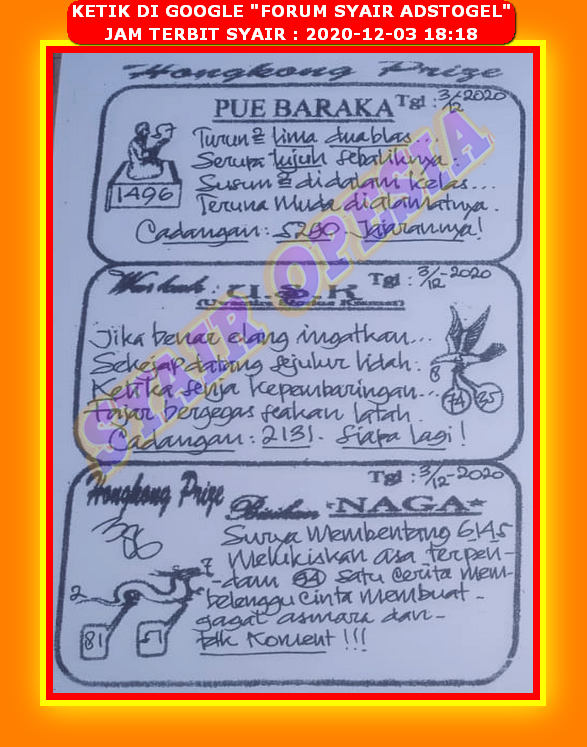 KETIK DI GOOGLE "FORUM SYAIR ADSTOGEL"
JAM TERBIT SYAIR : 2020-12-03 18:18
Hongkong Prize
PUE BARAKA Tgl : 3/12-2020
Turun² lima dua blas...
Serupa tujuh sebaliknya.
Susun² di dalam kelas...
Teruna Muda di alamatnya.
Cadangan : 5290. Jajarannya!
57
1496
Tgl : 3/12-2020
Jika benar elang ingatkan...
Sekejap datang sejulur lidah.
Ketika senja kepembaringan...
Fajar bergegas seakan latah.
Cadangan : 2131. Siapa lagi!
8
74
35
SYAIR OPESIA
Hongkong Prize
Tgl : 3/12-2020
NAGA
Surya Membentang 6145
Melukiskan asa terpen-
-dam 94 satu cerita mem-
belenggu cinta membuat-
gagat asmara dan-
tdk Koment !!!
7
2
81